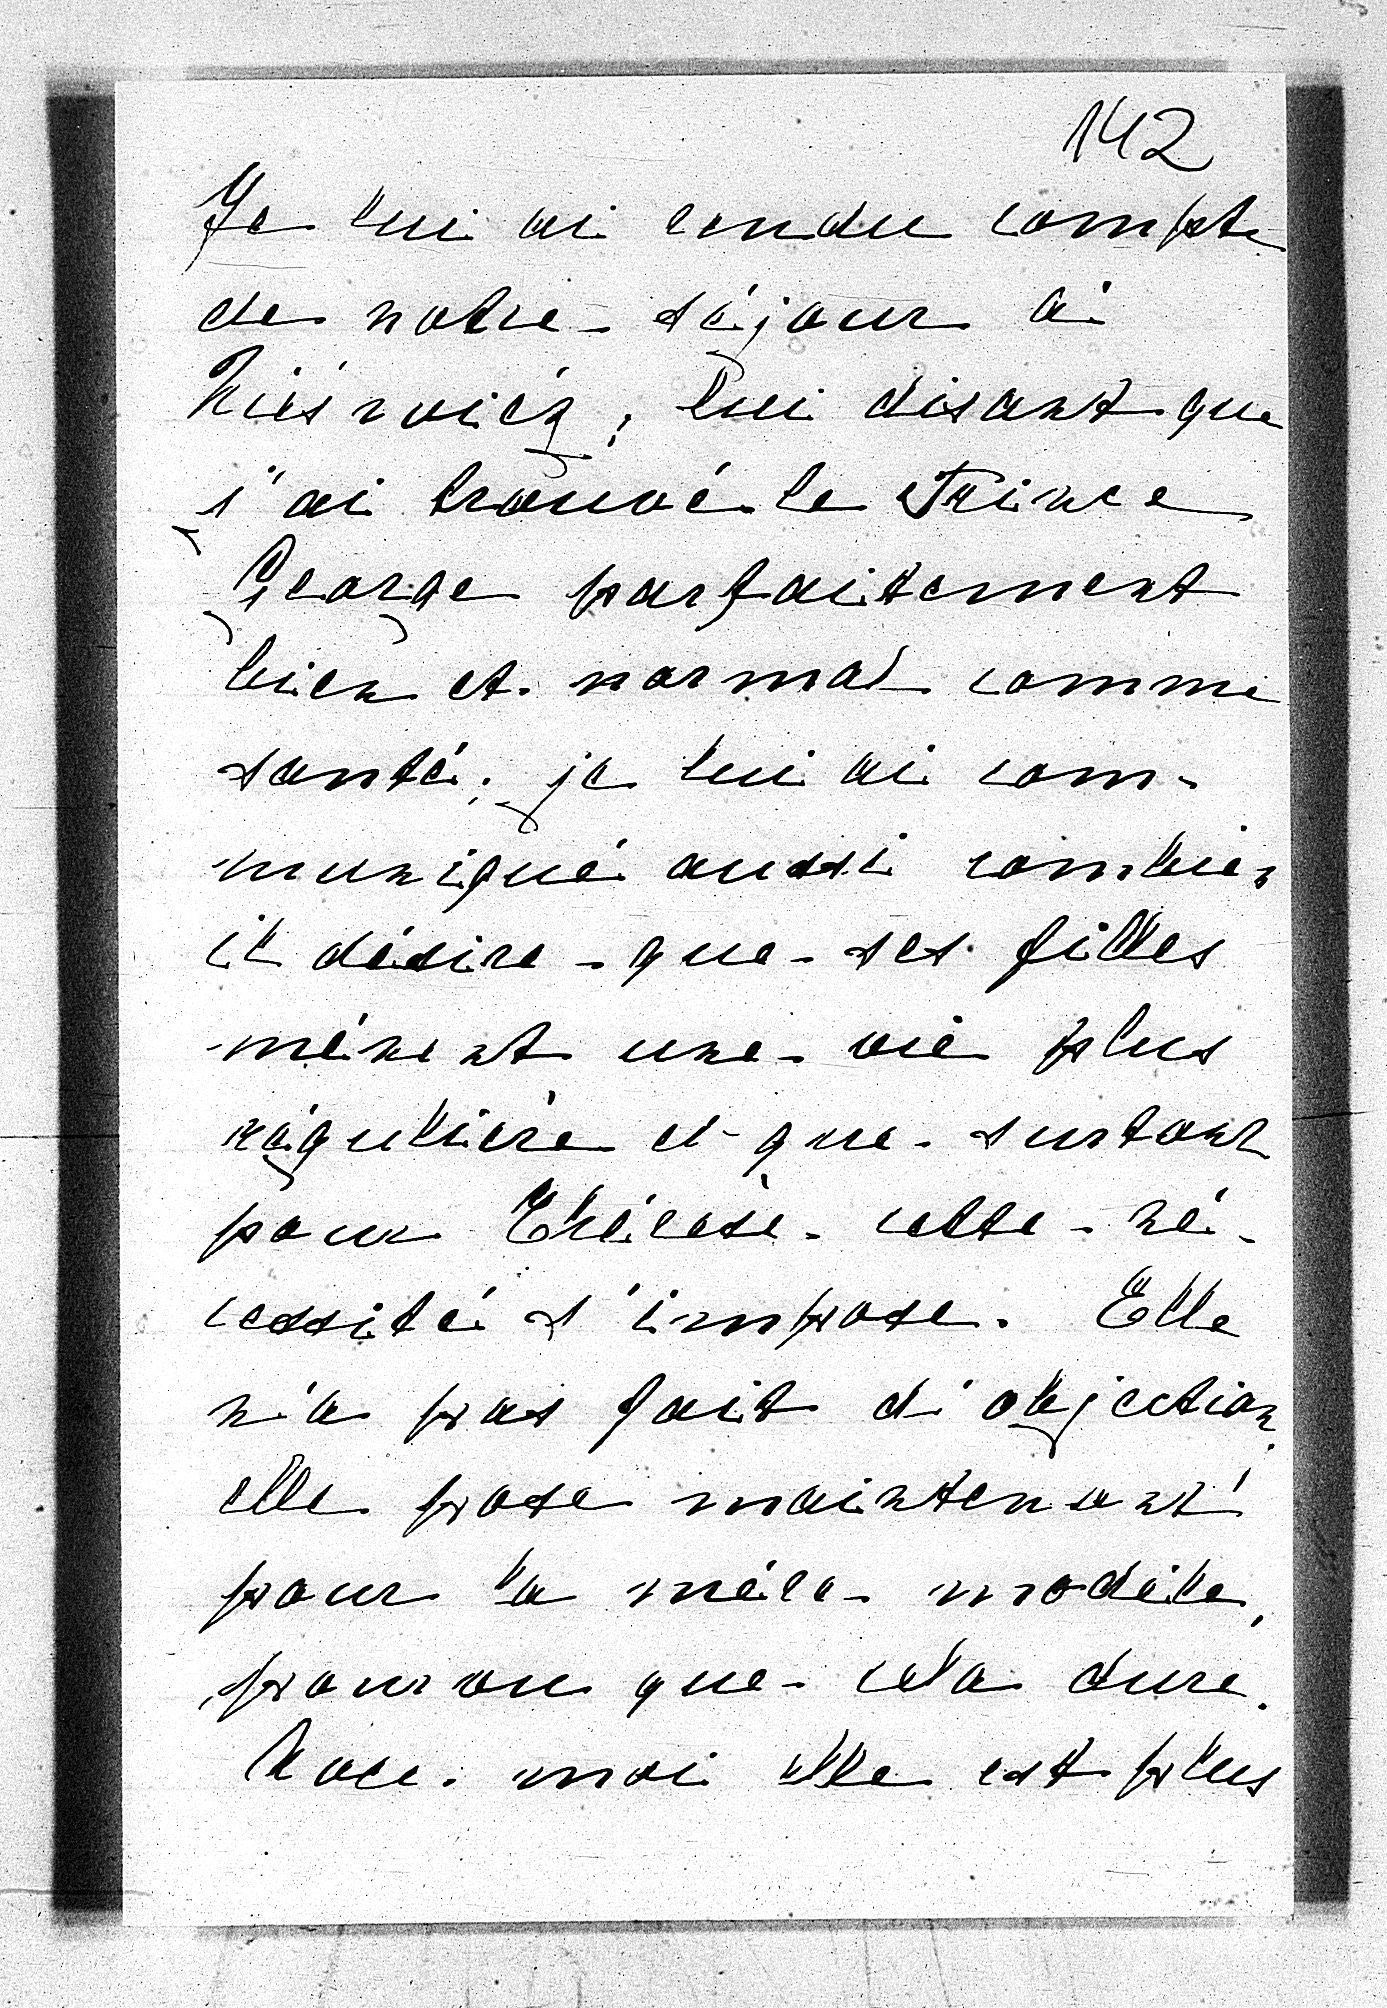 142
Je lui ai rendu compte
de notre séjour à
Niéświéz, lui disant que
j'ai trouvé le Prince
George parfaitement
bien et normal comme
santé; je lui ai com-
muniqué aussi combien
il désire que ses filles
mènent une vie plus
régulière et que surtout
pour Thérèse cette né-
cessité s'impose. Elle
n'a pas fait d'objection,
elle pose maintenant
pour la mère modèle,
pourvu que cela dure.
Avec moi elle est plus